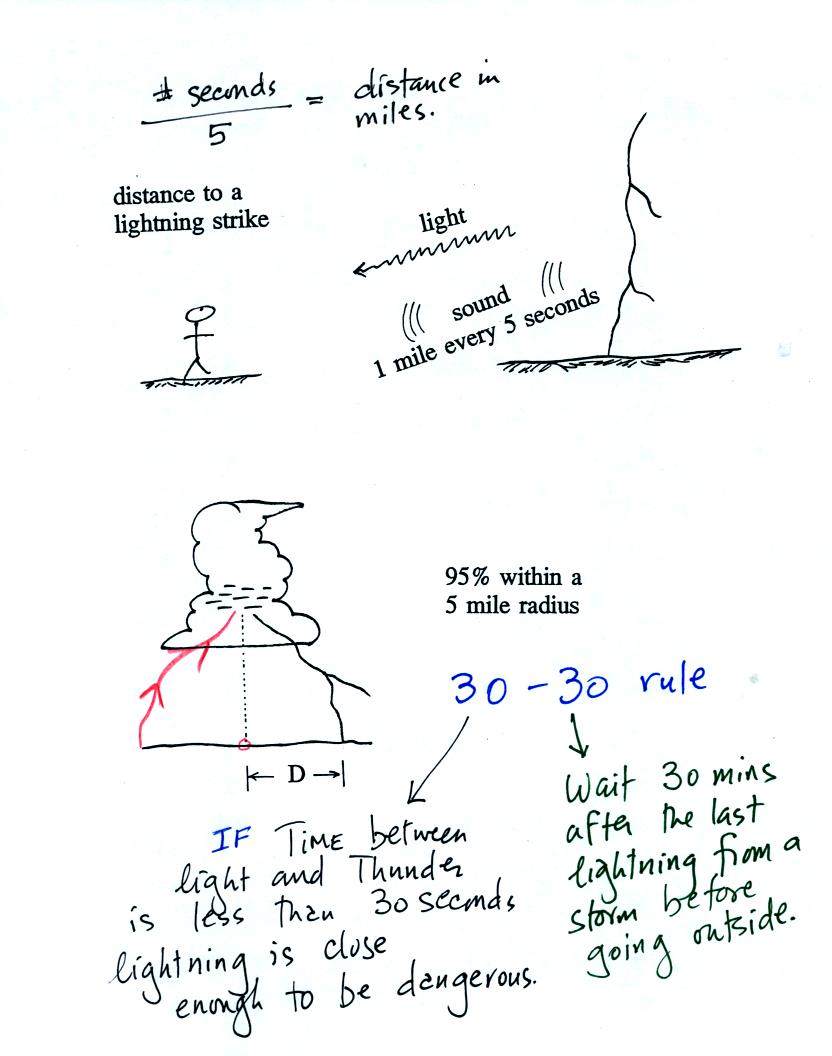 # seconds
5
= distance in
miles.
distance to a
lightning strike
light
sound
1 mile every 5 seconds
95% within a
5 mile radius
30 - 30 rule
D
IF TIME between
light and Thunder
is less than 30 seconds
lightning is close
enough to be dangerous.
Wait 30 mins
after the last
lightning from a
storm before
going outside.